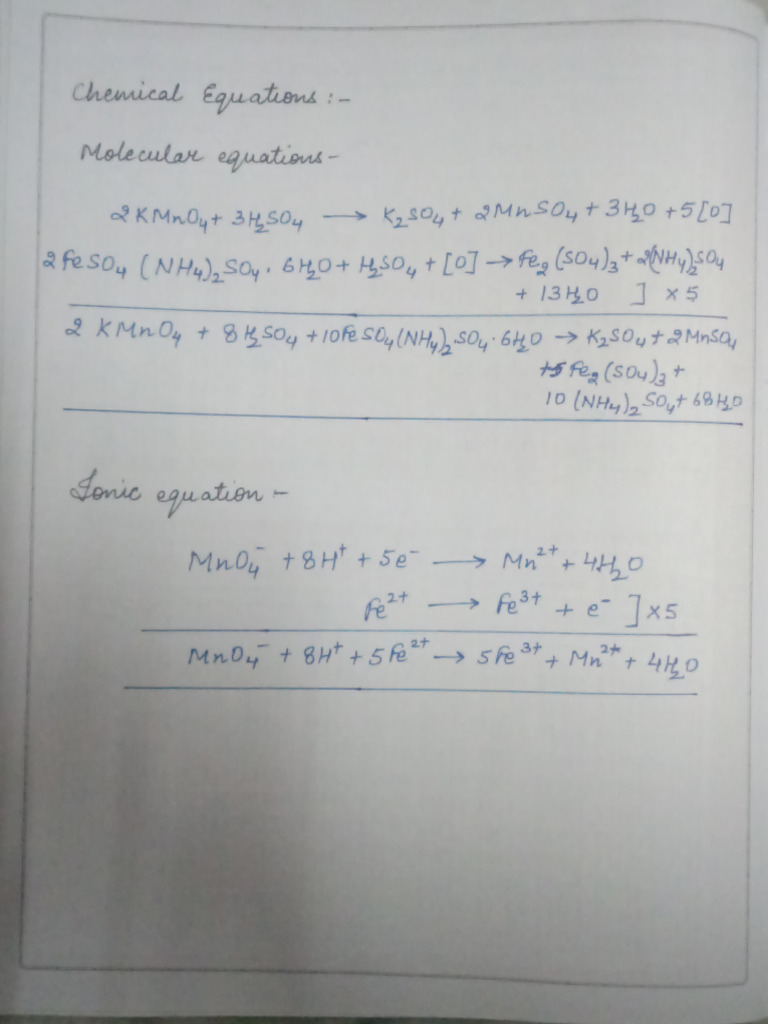 Chemical Equations :-
Molecular equations -
2 KMnO₄ + 3H₂SO₄ → K₂SO₄ + 2MnSO₄ + 3H₂O + 5[O]
2FeSO₄ (NH₄)₂SO₄ · 6H₂O + H₂SO₄ + [O] → Fe₂(SO₄)₃ + 2(NH₄)₂SO₄
+ 13H₂O ] × 5
2 KMnO₄ + 8H₂SO₄ + 10FeSO₄(NH₄)₂SO₄·6H₂O → K₂SO₄ + 2MnSO₄
+5Fe₂(SO₄)₃ +
10 (NH₄)₂SO₄ + 68H₂O
Ionic equation -
MnO₄⁻ + 8H⁺ + 5e⁻ → Mn²⁺ + 4H₂O
Fe²⁺ → Fe³⁺ + e⁻ ] ×5
MnO₄⁻ + 8H⁺ + 5Fe²⁺ → 5Fe³⁺ + Mn²⁺ + 4H₂O